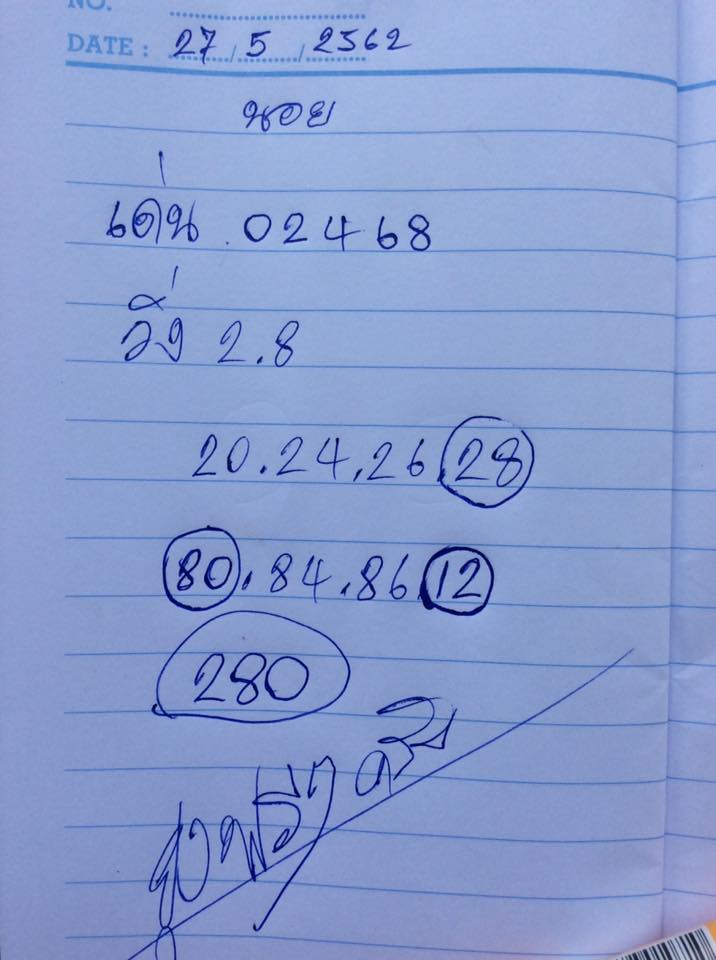 NO.
DATE : 27 / 5 / 2562
นอย
เด่น . 02468
วิ่ง 2.8
20.24,26,28
80.84.86.12
280
ฟรีๆ ครับ